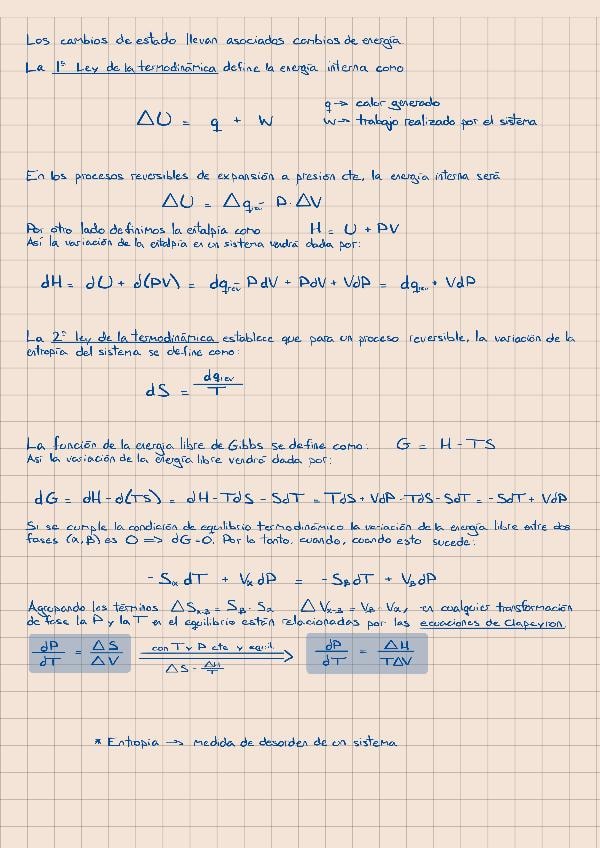 Los cambios de estado llevan asociados cambios de energía.
La 1ª Ley de la termodinámica define la energía interna como
ΔU = q + W
q → calor generado
W → trabajo realizado por el sistema
En los procesos reversibles de expansión a presión cte, la energía interna será
ΔU = Δq_rev - P·ΔV
Por otro lado definimos la entalpía como H = U + PV
Así la variación de la entalpía en un sistema vendrá dada por:
dH = dU + d(PV) = dq_rev - PdV + PdV + VdP = dq_rev + VdP
La 2ª ley de la termodinámica establece que para un proceso reversible, la variación de la
entropía del sistema se define como:
dS = dq_rev / T
La función de la energía libre de Gibbs se define como: G = H - TS
Así la variación de la energía libre vendrá dada por:
dG = dH - d(TS) = dH - TdS - SdT = TdS + VdP - TdS - SdT = - SdT + VdP
Si se cumple la condición de equilibrio termodinámico la variación de la energía libre entre dos
fases (α, β) es 0 => dG = 0. Por lo tanto, cuando, cuando esto sucede:
- S_α dT + V_α dP = - S_β dT + V_β dP
Agrupando los términos ΔS_α-β = S_β - S_α ΔV_α-β = V_β - V_α, en cualquier transformación
de fase la P y la T en el equilibrio están relacionados por las ecuaciones de Clapeyron:
dP/dT = ΔS/ΔV con T y P cte y equil. ΔS = ΔH/T → dP/dT = ΔH/TΔV
* Entropía → medida de desorden de un sistema